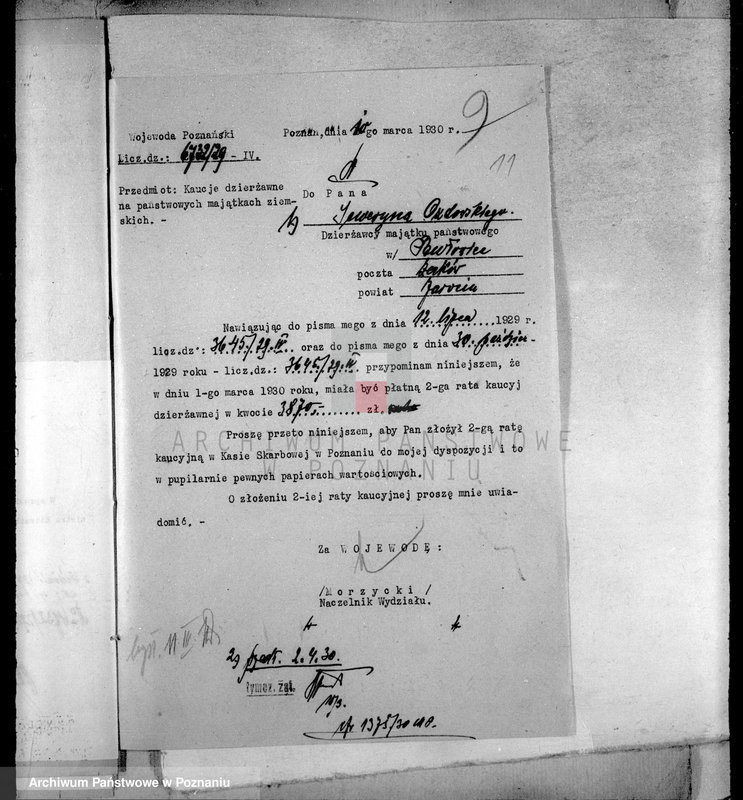 9
11
Wojewoda Poznański
Poznań, dnia 10 go marca 1930 r.
Licz.dz.: 6732/29 - IV.
Przedmiot: Kaucje dzierżawne
na państwowych majątkach ziem-
skich. -
Do Pana
1) Seweryna Ozdowskiego.
Dzierżawcy majątku państwowego
w/
poczta Żerków
powiat Jarocin
Nawiązując do pisma mego z dnia 12 lipca 1929 r.
licz.dz.: 3645/29 IV oraz do pisma mego z dnia 30. paździer-
1929 roku - licz.dz.: 3645/29 IV przypominam niniejszem, że
w dniu 1-go marca 1930 roku, miała być płatną 2-ga rata kaucyj
dzierżawnej w kwocie 3870,- zł.
Proszę przeto niniejszem, aby Pan złożył 2-gą ratę
kaucyjną w Kasie Skarbowej w Poznaniu do mojej dyspozycji i to
w pupilarnie pewnych papierach wartościowych.
O złożeniu 2-iej raty kaucyjnej proszę mnie uwia-
domić. -
Za WOJEWODĘ:
/Morzycki/
Naczelnik Wydziału.
2) 2.4.30.
10/3.
1375/30
ARCHIWUM PAŃSTWOWE
W POZNANIU
Archiwum Państwowe w Poznaniu